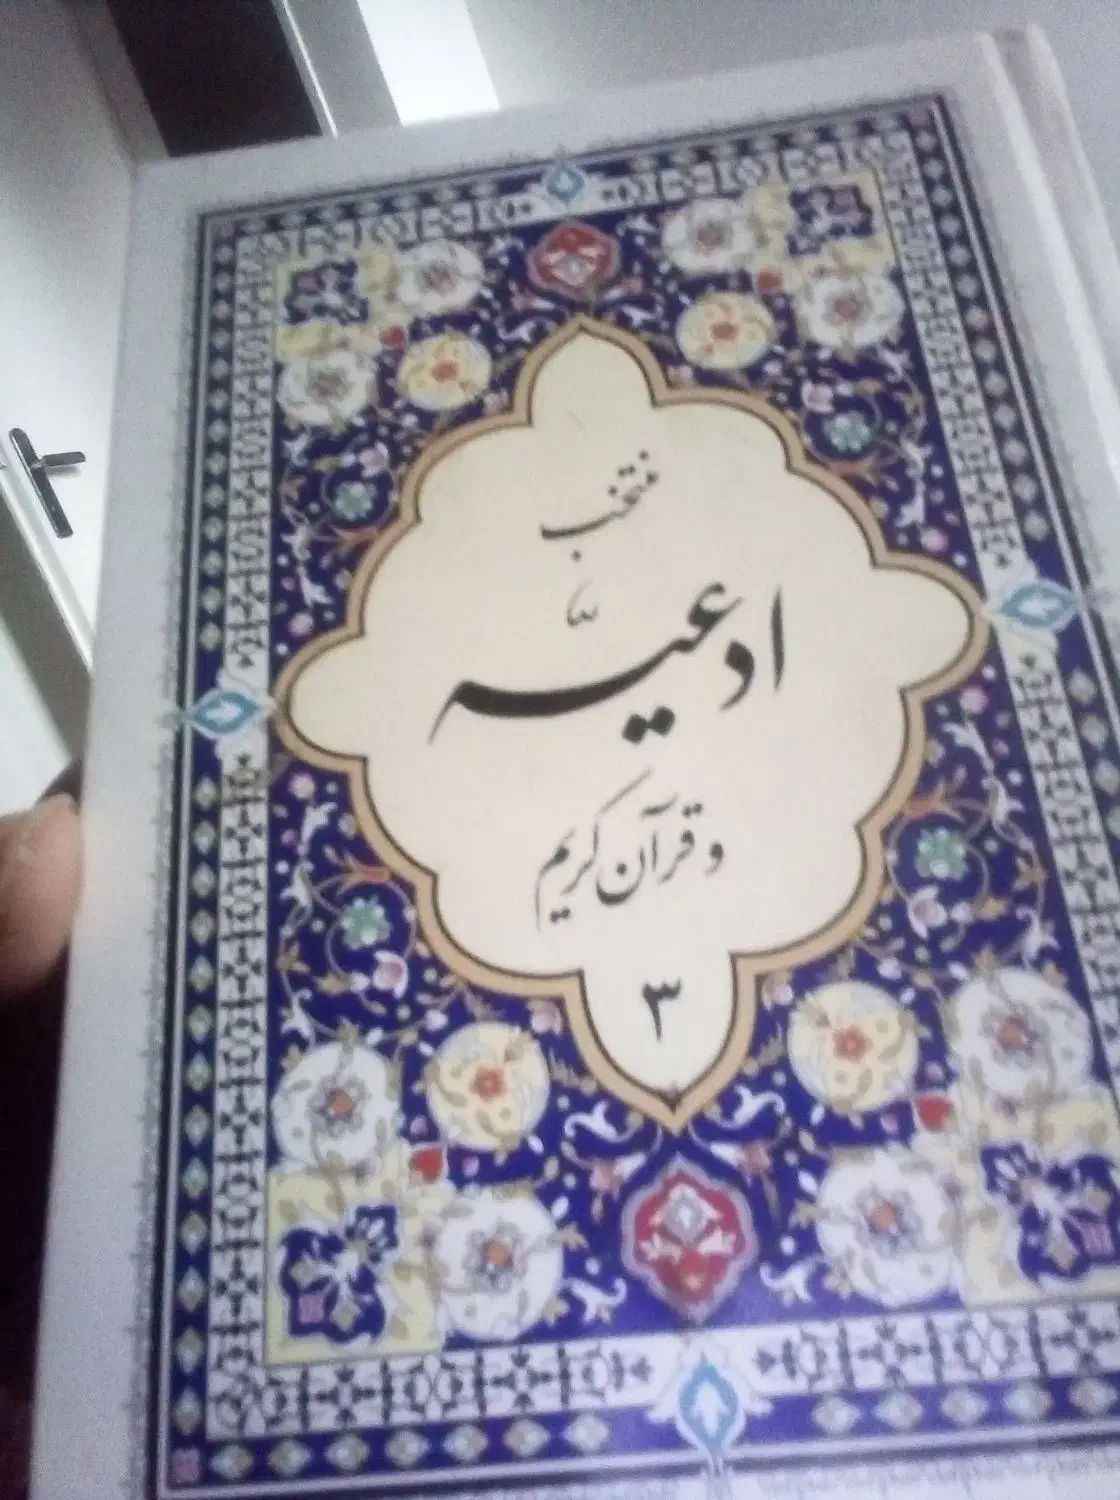 منتخب
ادعیّه
و قرآن کریم
۳